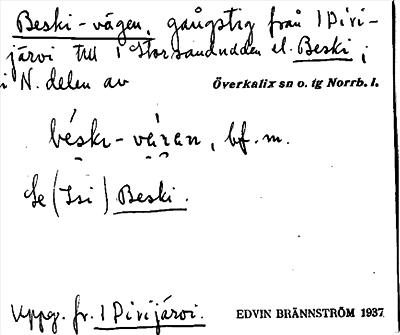 Beski-vägen, gångstig från 1 Pivi-
järvi till 1 Storsandudden el. Beski;
i N. delen av Överkalix sn o. tg Norrb. l.
béski-vá̀ran, bf. m.
Se (Isi) Beski.
Uppg. fr. 1 Pivijärvi. EDVIN BRÄNNSTRÖM 1937